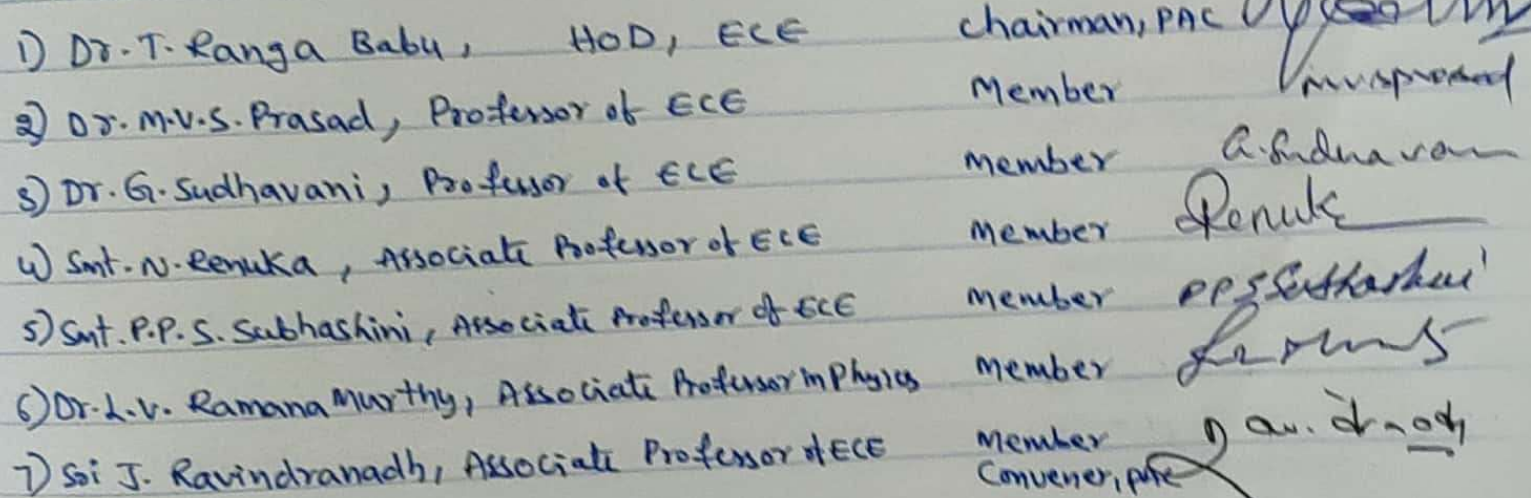 1) Dr. T. Ranga Babu, HOD, ECE Chairman, PAC
2) Dr. M.V.S. Prasad, Professor of ECE Member mvsprasad
3) Dr. G. Sudhavani, Professor of ECE Member G. Sudhavani
4) Smt. N. Renuka, Associate Professor of ECE Member Renuka
5) Smt. P.P.S. Subhashini, Associate Professor of ECE Member PPSSubhashini
6) Dr. L.V. Ramana Murthy, Associate Professor in Physics Member
7) Sri J. Ravindranadh, Associate Professor of ECE Member
Convener,